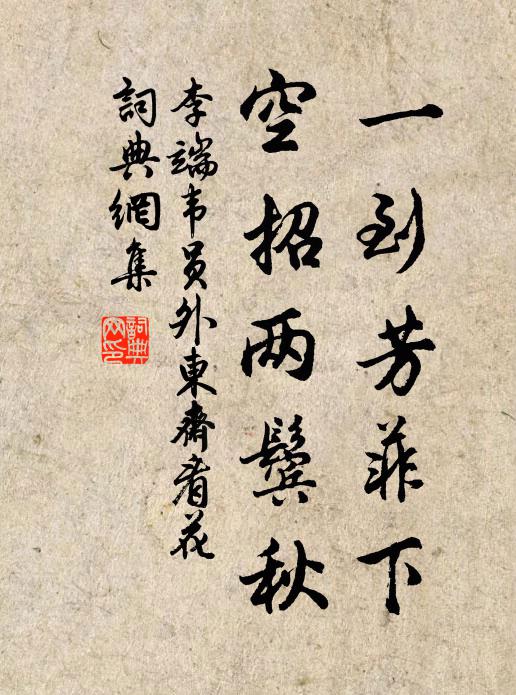 一到芳菲下
空招两鬓秋
李端韦员外東齋看花
詞典網集
詞典網印